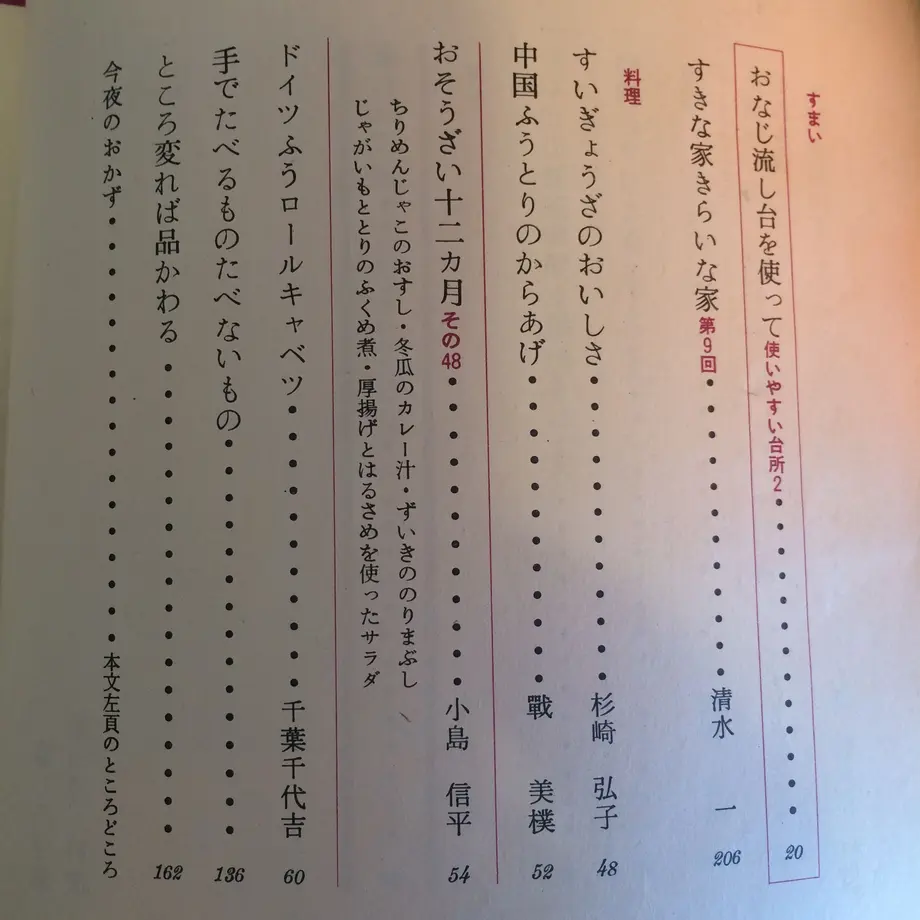 すまい
おなじ流し台を使って 使いやすい台所2・・・・・・・・・・・・20
すきな家きらいな家 第9回・・・・・・・・・・・・清水 一 206
料理
すいぎょうざのおいしさ・・・・・・・・・・・・杉崎 弘子 48
中国ふうとりのからあげ・・・・・・・・・・・・戰 美樸 52
おそうざい十二カ月 その48・・・・・・・・・・・・小島 信平 54
ちりめんじゃこのおすし・冬瓜のカレー汁・ずいきののりまぶし
じゃがいもととりのふくめ煮・厚揚げとはるさめを使ったサラダ
ドイツふうロールキャベツ・・・・・・・・・・・千葉千代吉 60
手でたべるものたべないもの・・・・・・・・・・・・・・・136
ところ変れば品かわる・・・・・・・・・・・・・・・・・・162
今夜のおかず・・・・・・・・・・・・・・・・・本文左頁のところどころ